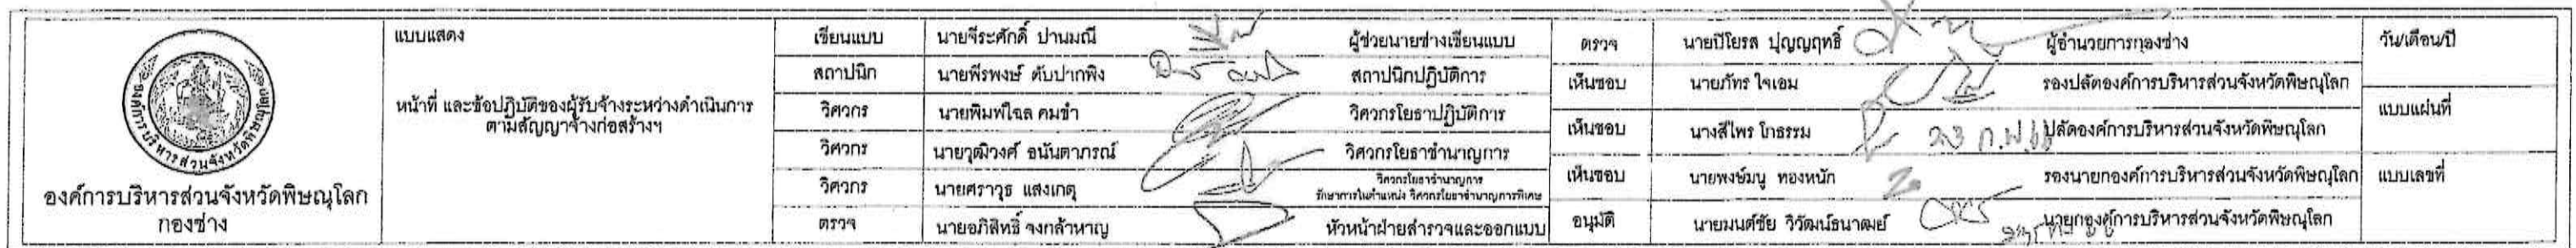 องค์การบริหารส่วนจังหวัดพิษณุโลก
องค์การบริหารส่วนจังหวัดพิษณุโลก
กองช่าง
แบบแสดง
หน้าที่ และข้อปฏิบัติของผู้รับจ้างระหว่างดำเนินการ
ตามสัญญาจ้างก่อสร้างฯ
เขียนแบบ นายจีระศักดิ์ ปานมณี ผู้ช่วยนายช่างเขียนแบบ
สถาปนิก นายพีรพงษ์ ดับปากพิง สถาปนิกปฏิบัติการ
วิศวกร นายพิมพ์ไฉล คมขำ วิศวกรโยธาปฏิบัติการ
วิศวกร นายวุฒิวงศ์ อนันตาภรณ์ วิศวกรโยธาชำนาญการ
วิศวกร นายศราวุธ แสงเกตุ วิศวกรโยธาชำนาญการ
รักษาการในตำแหน่ง วิศวกรโยธาชำนาญการพิเศษ
ตรวจ นายอภิสิทธิ์ จงกล้าหาญ หัวหน้าฝ่ายสำรวจและออกแบบ
ตรวจ นายปิโยรส ปุญญฤทธิ์ ผู้อำนวยการกองช่าง
เห็นชอบ นายภัทร ใจเอม รองปลัดองค์การบริหารส่วนจังหวัดพิษณุโลก
เห็นชอบ นางสีไพร โกธรรม 23 ก.พ.66 ปลัดองค์การบริหารส่วนจังหวัดพิษณุโลก
เห็นชอบ นายพงษ์มนู ทองหนัก รองนายกองค์การบริหารส่วนจังหวัดพิษณุโลก
อนุมัติ นายมนต์ชัย วิวัฒน์ธนาฒย์ นายกองค์การบริหารส่วนจังหวัดพิษณุโลก
วัน/เดือน/ปี
แบบแผ่นที่
แบบเลขที่